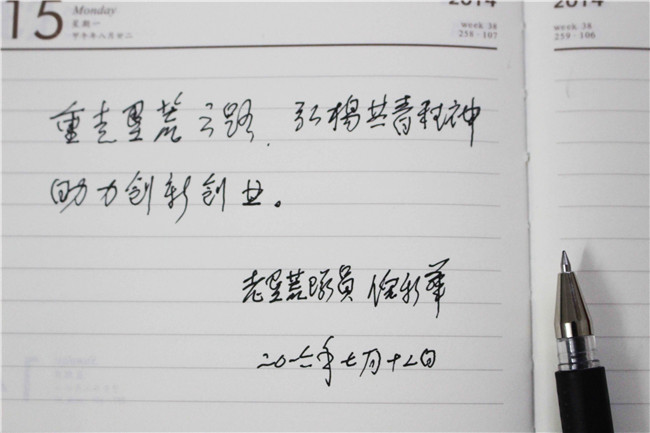 15 Monday 2014
星期一 week 38 week 38
甲午年八月廿二 258·107 259·106
重走垦荒之路、弘扬共青精神
助力创新创业。
老垦荒队员 徐新华
二〇一六年七月十七日